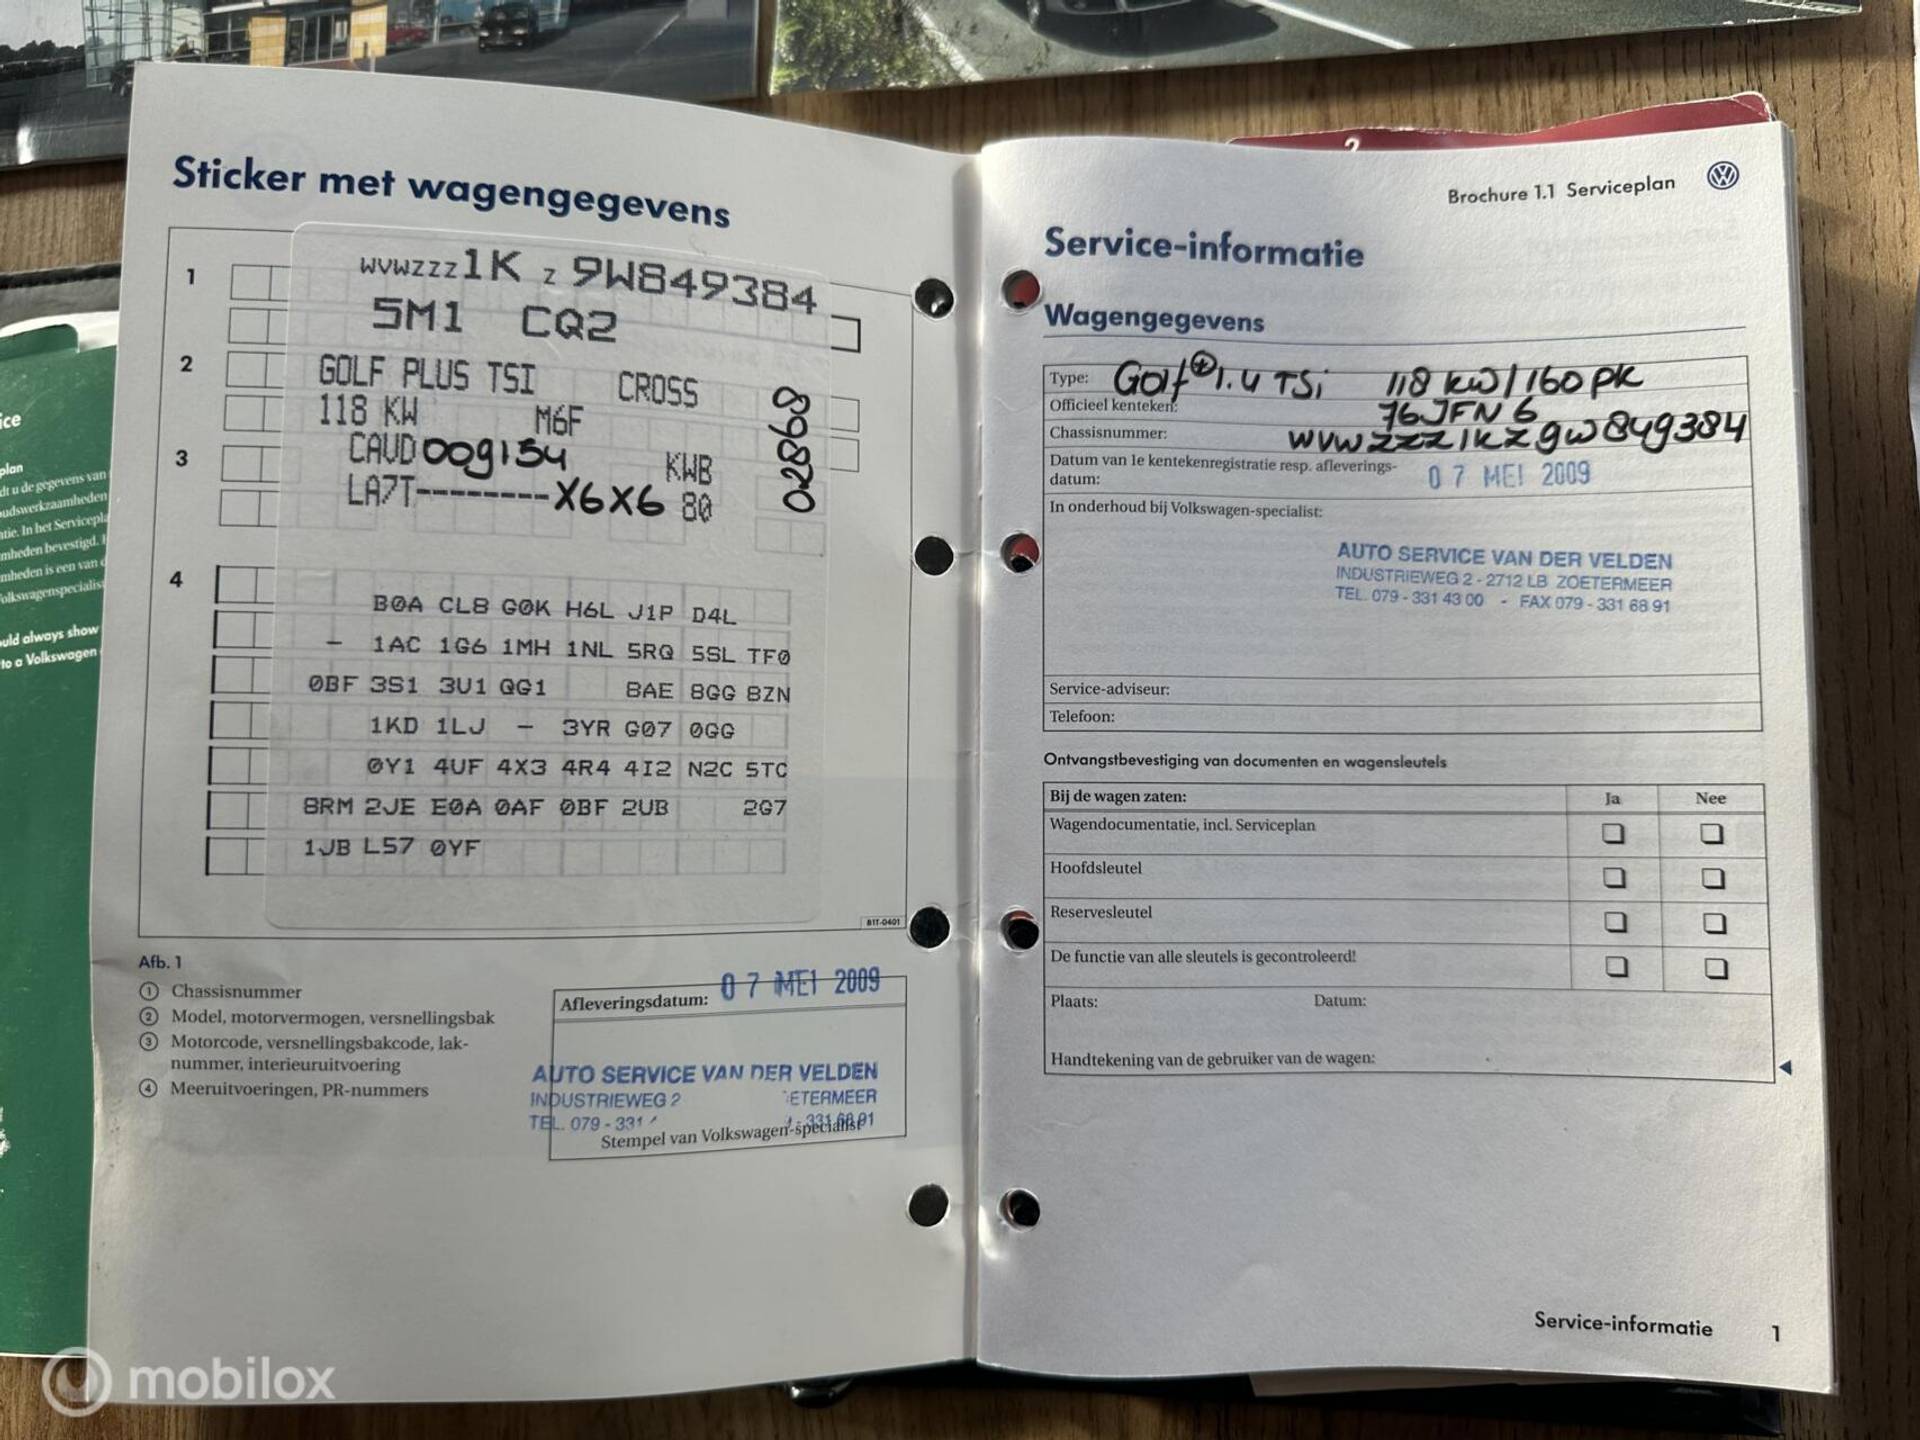 Sticker met wagengegevens
1
WVWZZZ1K Z 9W849384
5M1 CQ2
2
GOLF PLUS TSI CROSS
118 KW M6F
02868
3
CAUD009154 KWB
LA7T--------X6X6 80
4
B0A CL8 G0K H6L J1P D4L
- 1AC 1G6 1MH 1NL 5RQ 5SL TF0
0BF 3S1 3U1 QG1 8AE 8GG 8ZN
1KD 1LJ - 3YR G07 0GG
0Y1 4UF 4X3 4R4 4I2 N2C 5TC
8RM 2JE E0A 0AF 0BF 2UB 2G7
1JB L57 0YF
B1T-0401
Afb. 1
1 Chassisnummer
2 Model, motorvermogen, versnellingsbak
3 Motorcode, versnellingsbakcode, lak-
nummer, interieuruitvoering
4 Meeruitvoeringen, PR-nummers
Afleveringsdatum: 07 MEI 2009
AUTO SERVICE VAN DER VELDEN
INDUSTRIEWEG 2 ETERMEER
TEL. 079 - 331 - 331 68 91
Stempel van Volkswagen-specialist
Brochure 1.1 Serviceplan
Service-informatie
Wagengegevens
Type: Golf + 1.4 TSi 118 KW/160 PK
Officieel kenteken: 76JFN6
Chassisnummer: WVWZZZ1KZ9W849384
Datum van 1e kentekenregistratie resp. afleverings-
datum: 07 MEI 2009
In onderhoud bij Volkswagen-specialist:
AUTO SERVICE VAN DER VELDEN
INDUSTRIEWEG 2 - 2712 LB ZOETERMEER
TEL. 079 - 331 43 00 - FAX 079 - 331 68 91
Service-adviseur:
Telefoon:
Ontvangstbevestiging van documenten en wagensleutels
Bij de wagen zaten: Ja Nee
Wagendocumentatie, incl. Serviceplan
Hoofdsleutel
Reservesleutel
De functie van alle sleutels is gecontroleerd!
Plaats: Datum:
Handtekening van de gebruiker van de wagen:
Service-informatie 1
2
ice
plan
dt u de gegevens van
oudswerkzaamheden
tie. In het Servicepla
mheden bevestigd.
mheden is een van
olkswagenspecialis
ould always show
to a Volkswagen
mobilox